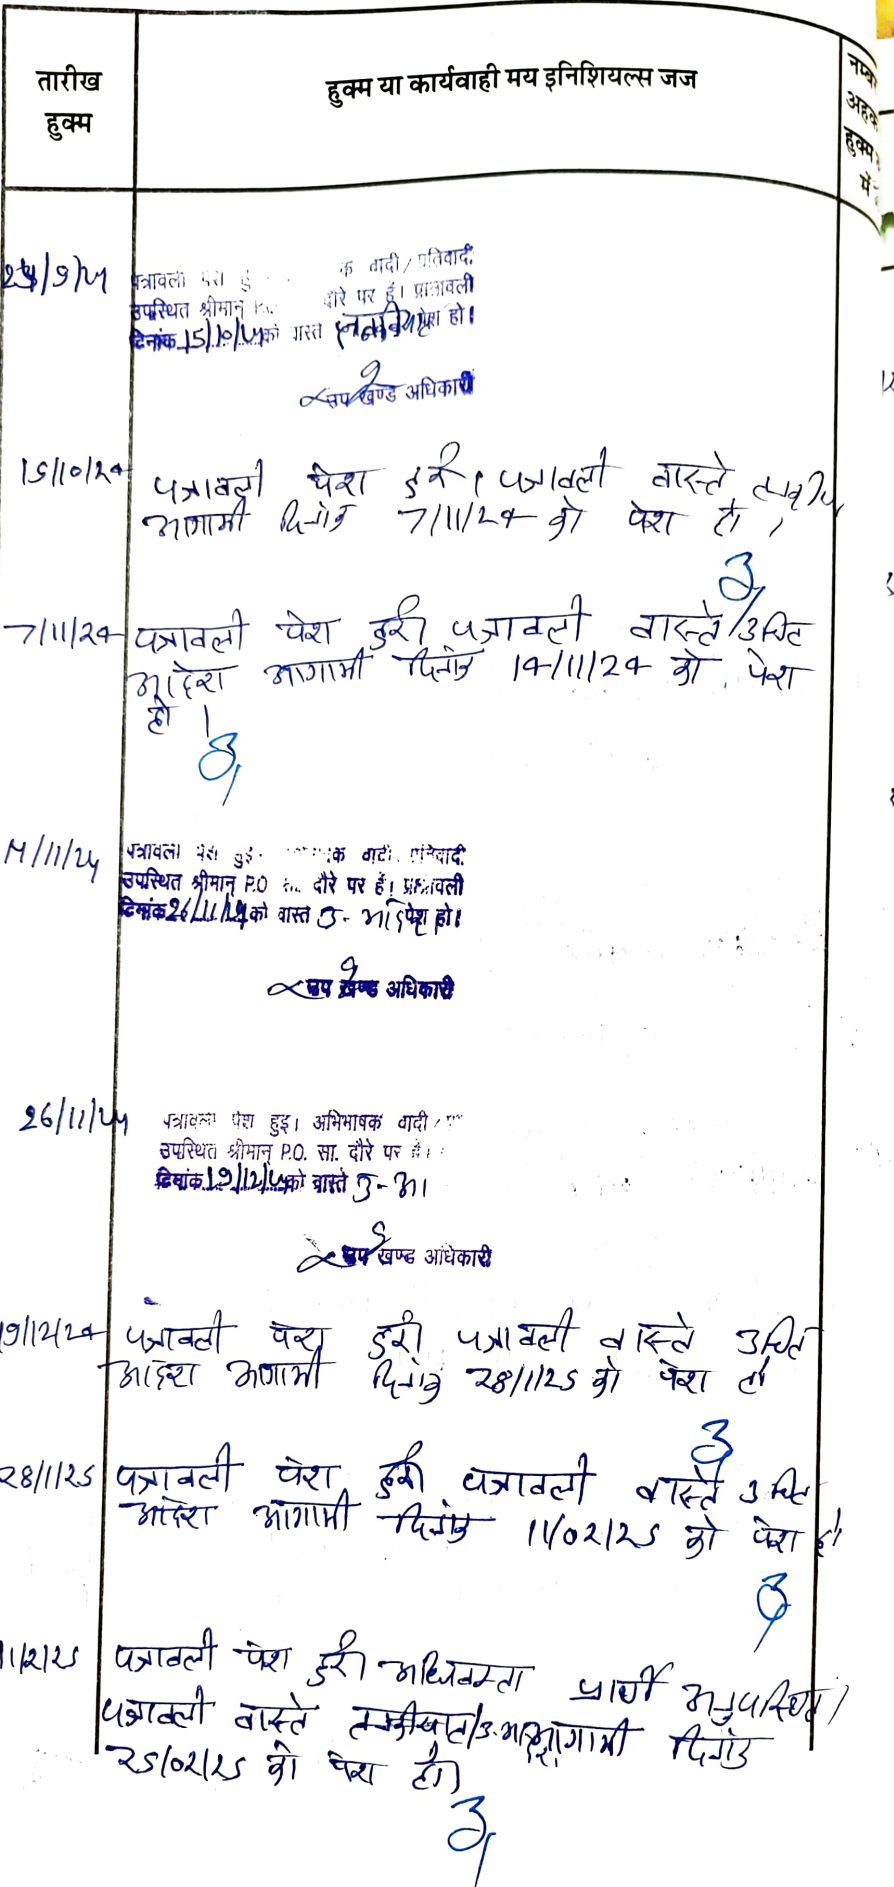 तारीख
हुक्म
हुक्म या कार्यवाही मय इनिशियल्स जज
हुक्म
में
पत्रावली पेश वादी/प्रतिवादी
उपस्थित श्रीमान् दौरे पर हैं। पत्रावली
दिनांक 15/10/24 को वास्ते पेश हो।
उप खण्ड अधिकारी
15/10/24 पत्रावली पेश हुई। पत्रावली वास्ते
आगामी दिनांक 7/11/24 को पेश हो।
7/11/24 पत्रावली पेश हुई। पत्रावली वास्ते उचित
आदेश आगामी दिनांक 14/11/24 को पेश
हो।
14/11/24 पत्रावली पेश हुई
उपस्थित श्रीमान् P.O दौरे पर हैं। पत्रावली
दिनांक 26/11/24 को वास्ते उ- आदेश पेश हो।
उप खण्ड अधिकारी
26/11/24 पत्रावली पेश हुइ। अभिभाषक वादी
उपस्थित श्रीमान् P.O. सा. दौरे पर हैं।
दिनांक 19/12/24 को वास्ते उ- आ
उप खण्ड अधिकारी
19/12/24 पत्रावली पेश हुई। पत्रावली वास्ते उचित
आदेश आगामी दिनांक 28/1/25 को पेश हो
28/1/25 पत्रावली पेश हुई पत्रावली वास्ते उचित
आदेश आगामी दिनांक 11/02/25 को पेश हो
11/2/25 पत्रावली पेश हुई। अधिवक्ता प्रार्थी अनुपस्थित।
पत्रावली वास्ते आगामी दिनांक
25/02/25 को पेश हो।